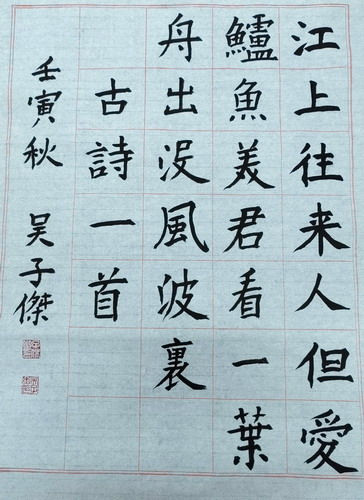 江上往来人但愛
鱸魚美君看一葉
舟出没風波裏
古詩一首
壬寅秋 吴子傑